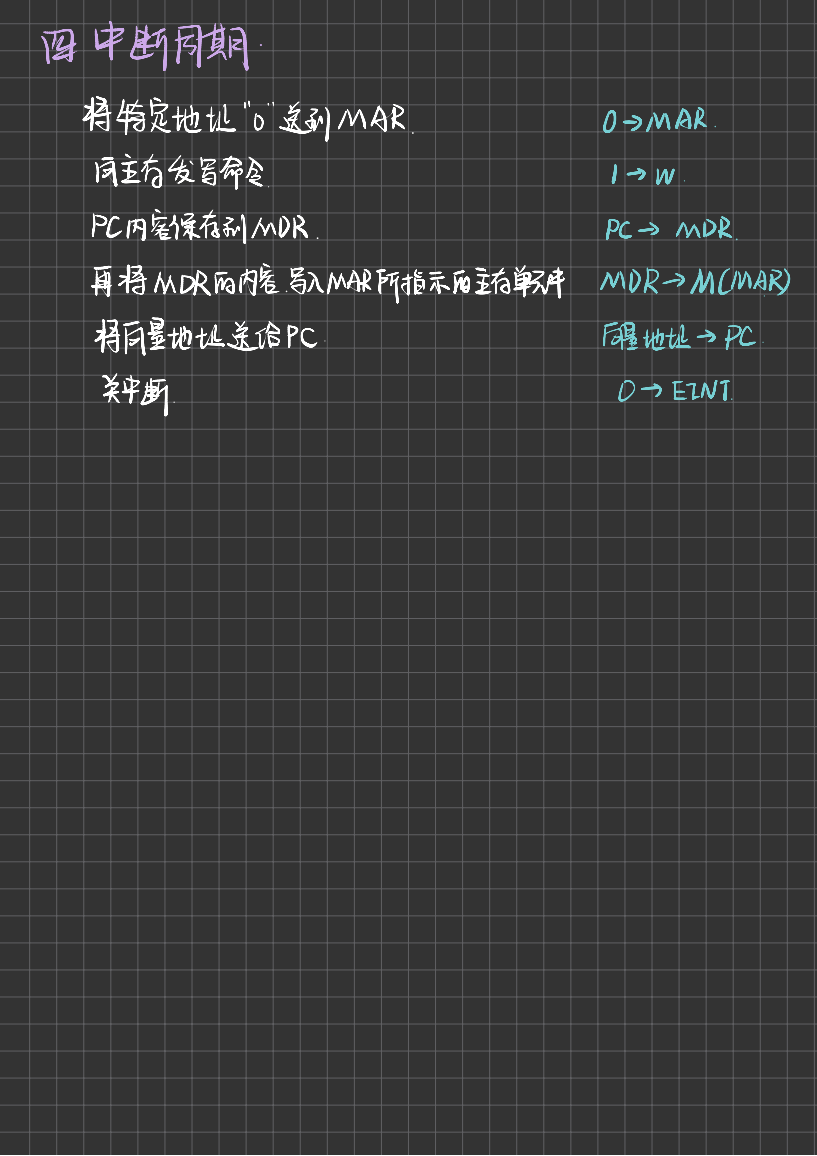 四 中断周期.
将特定地址"0"送到MAR. 0→MAR.
向主存发写命令. 1→W.
PC内容保存到MDR. PC→MDR.
再将MDR的内容.写入MAR所指示的主存单元中 MDR→M(MAR)
将向量地址送给PC. 向量地址→PC.
关中断. 0→EINT.